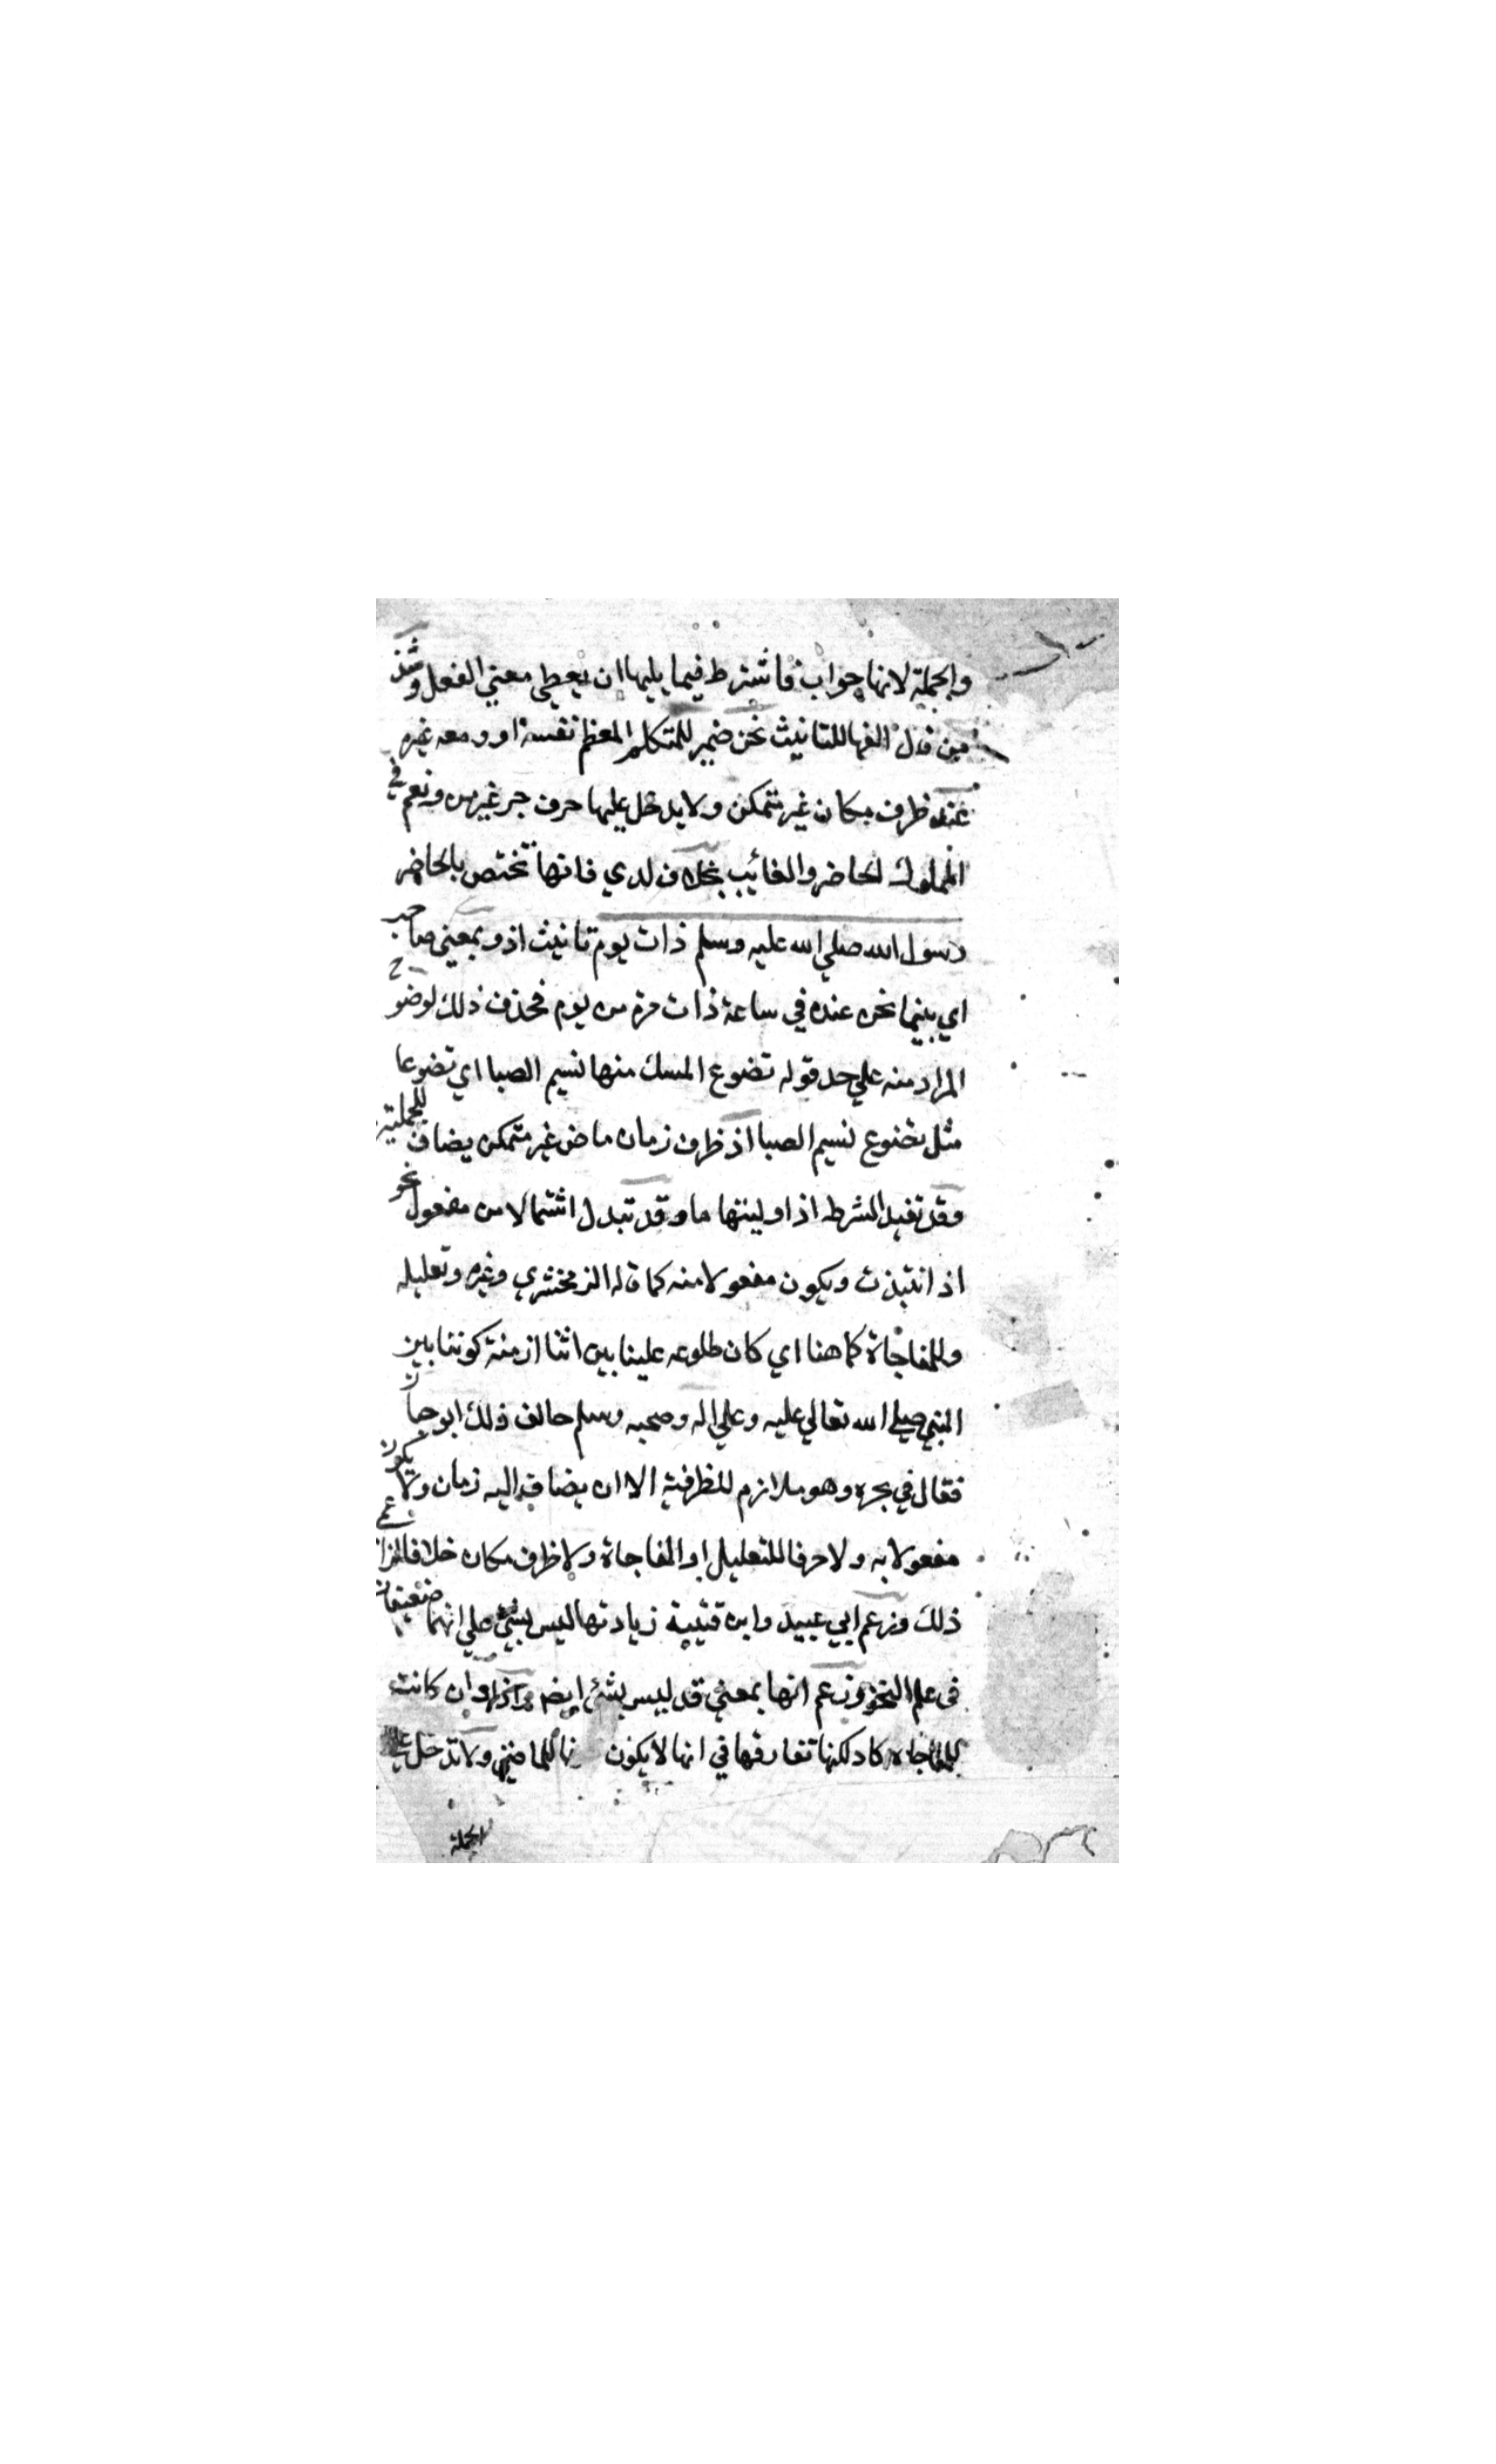 والجملة لانها جواب فاشترط فيما يليها ان يعطي معني الفعل وشذ
من قال الفها للتانيث نحن ضمير للمتكلم المعظم نفسه او ومعه غيره
عند ظرف مكان غير متمكن ولا يدخل عليها حرف جر غير من ونعم في
المملوك الحاضر والغائب بخلاف لدي فانها تختص بالحاضر
رسول الله صلي الله عليه وسلم ذات يوم تانيث اذو بمعني صاحب
اي بينما نحن عنده في ساعة ذات مرة من يوم فحذف ذلك لوضوح
المراد منه علي حد قوله تضوع المسك منها نسيم الصبا اي تضوعا
مثل تضوع نسيم الصبا اذ ظرف زمان ماض غير متمكن يضاف للجملتين
وقد تفيد الشرط اذا وليتها ما وقد تبدل اشتمالا من مفعول نحو
اذ انتبذت ويكون مفعولا منه كما قاله الزمخشري وغيره وتعليله
وللمفاجاة كما هنا اي كان طلوعه علينا بين اثنا ازمنة كوننا بين
النبي صلي الله تعالي عليه وعلي اله وصحبه وسلم خالف ذلك ابو حيان
فقال في بحره وهو ملازم للظرفية الا ان يضاف اليه زمان ولا يكون
مفعولا به ولا حرفا للتعليل او المفاجاة ولا ظرف مكان خلافا لمن زعم
ذلك وزعم ابي عبيد وابن قتيبة زيادتها ليس بشئ علي انهما ضعيفان
في علم النحو وزعم انها بمعني قد ليس بشئ ايضا واذا وان كانت
للمفاجاة كاد لكنها تفارقها في انها لا يكون للماضي ولا تدخل علي
الجملة